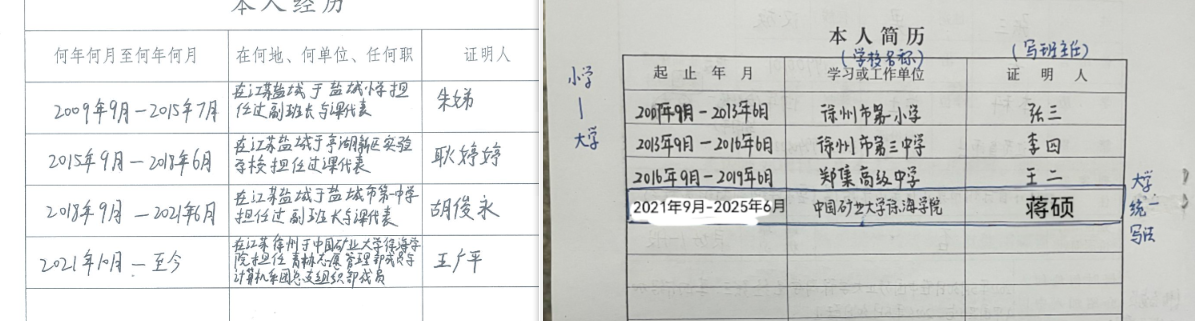 本人经历
何年何月至何年何月 在何地、何单位、任何职 证明人
2009年9月－2015年7月 在江苏盐城于盐城小学担任过副班长与课代表 朱娣
2015年9月－2018年6月 在江苏盐城于亭湖新区实验学校担任过课代表 耿婷婷
2018年9月－2021年6月 在江苏盐城于盐城市第一中学担任过副班长与课代表 胡俊永
2021年10月－至今 在江苏徐州于中国矿业大学徐海学院担任 管理部成员与计算机系团总支组织部成员 王广平
本人简历
(学校名称) (写班主任)
起止年月 学习或工作单位 证明人
小学
|
大学
2007年9月－2013年6月 徐州市第一小学 张三
2013年9月－2016年6月 徐州市第三中学 李四
2016年9月－2019年6月 郑集高级中学 王二
2021年9月-2025年6月 中国矿业大学徐海学院 蒋硕
大学统一写法